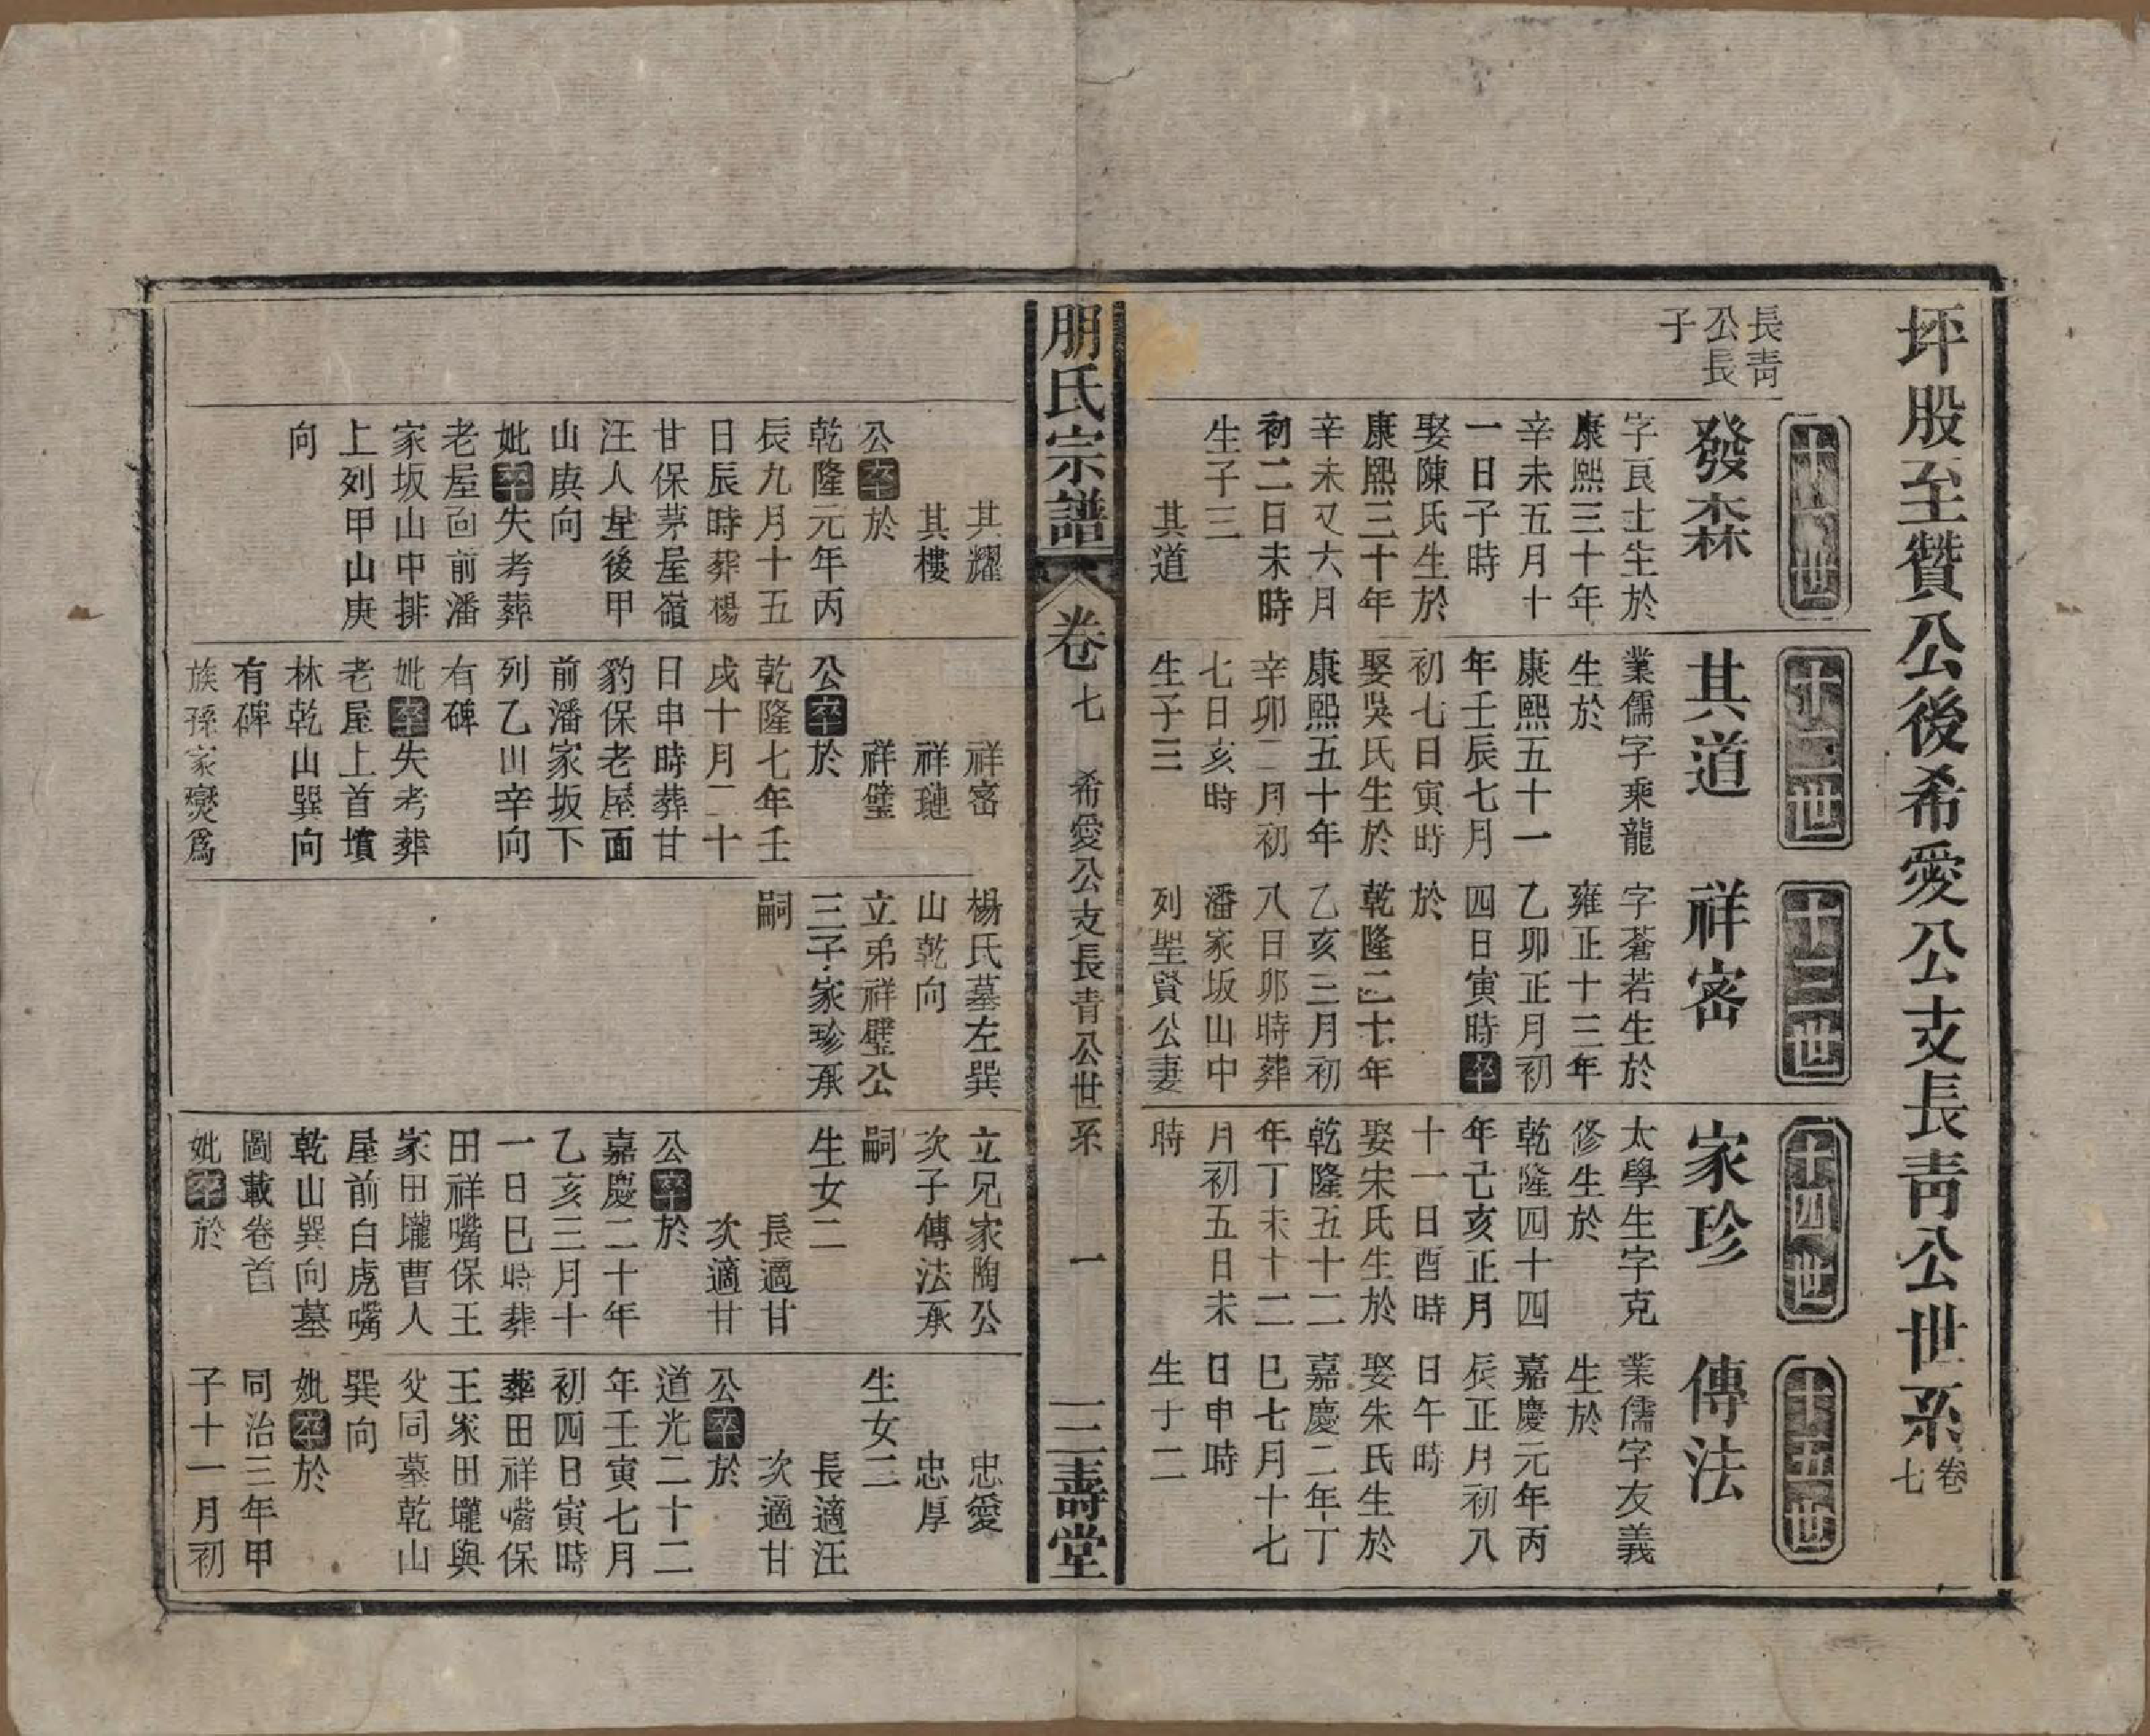 坪股至贊公後希愛公支長靑公世系卷七
長靑
公長
子
十一世
發森
字良士生於
康熙三十年
辛未五月十
一日子時
娶陳氏生於
康熙三十年
辛未又六月
初二日未時
生子三
其道
十二世
其道
業儒字乘龍
生於
康熙五十一
年壬辰七月
初七日寅時
娶吳氏生於
康熙五十年
辛卯二月初
七日亥時
生子三
十三世
祥密
字蒼若生於
雍正十三年
乙卯正月初
四日寅時卒
於
乾隆二十年
乙亥三月初
八日卯時葬
潘家坂山中
列聖賢公妻
十四世
家珍
太學生字克
修生於
乾隆四十四
年己亥正月
十一日酉時
娶宋氏生於
乾隆五十二
年丁未十二
月初五日未
時
十五世
傳法
業儒字友義
生於
嘉慶元年丙
辰正月初八
日午時
娶朱氏生於
嘉慶二年丁
巳七月十七
日申時
生子二
朋氏宗譜
卷七
希愛公支長青公世系
一
三壽堂
其耀
其樓
公卒於
乾隆元年丙
辰九月十五
日辰時葬楊
甘保茅屋嶺
汪人屋後甲
山庚向
妣卒失考葬
老屋面前潘
家坂山中排
上列甲山庚
向
祥密
祥璉
祥璧
公卒於
乾隆七年壬
戌十月二十
日申時葬甘
豹保老屋面
前潘家坂下
列乙山辛向
有碑
妣卒失考葬
老屋上首墳
林乾山巽向
有碑
族孫家爕爲
楊氏墓左巽
山乾向
立弟祥璧公
三子家珍承
嗣
立兄家陶公
次子傳法承
嗣
生女二
長適甘
次適甘
公卒於
嘉慶二十年
乙亥三月十
一日巳時葬
田祥嘴保王
家田壠曹人
屋前白虎嘴
乾山巽向墓
圖載卷首
妣卒於
忠愛
忠厚
生女二
長適汪
次適甘
公卒於
道光二十二
年壬寅七月
初四日寅時
葬田祥嘴保
王家田壠與
父同墓乾山
巽向
妣卒於
同治三年甲
子十一月初